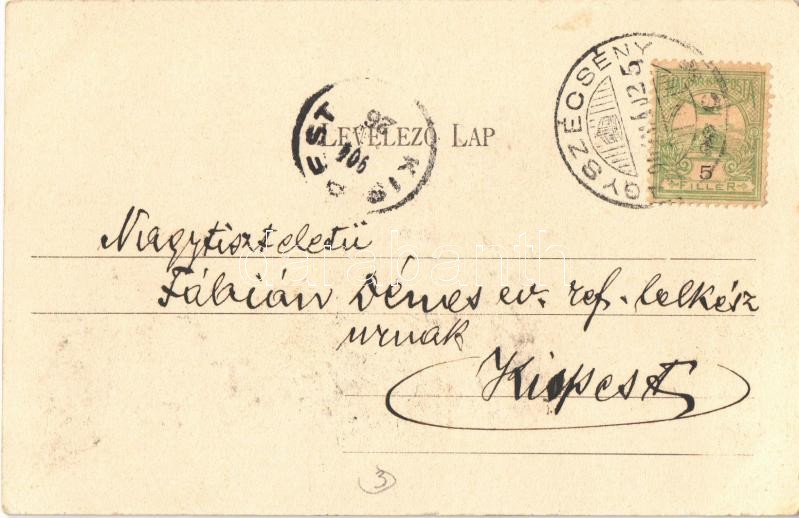 LEVELEZŐ LAP
KISPEST
904
26
GYSZÉCSÉNY
MÁJ 25
MAGYAR KIR. POSTA
5
FILLÉR
Nagytiszteletü
Fábián Dénes ev. ref. lelkész
urnak
Kispest
3
darabanth